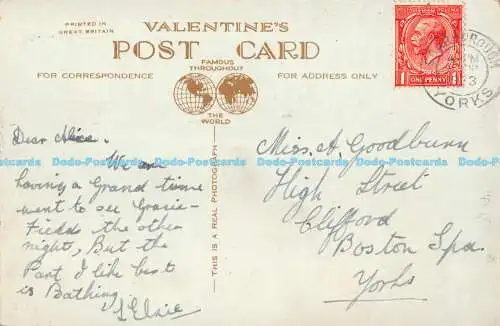 PRINTED IN
GREAT BRITAIN
VALENTINE'S
POST CARD
FOR CORRESPONDENCE
FAMOUS
THROUGHOUT
FOR ADDRESS ONLY
THE
WORLD
THIS IS A REAL PHOTOGRAPH
1 ONE PENNY 1
YORKS
Dear Alice.
We are
having a Grand time
went to see Gracie
Fields the other
night, But the
Part I like best
is Bathing
Elsie
Miss. A. Goodburn
High Street
Clifford
Boston Spa
Yorks
Dodo-Postcards Dodo-Postcards Dodo-Postcards Dodo-Postcards Dodo-Postcards